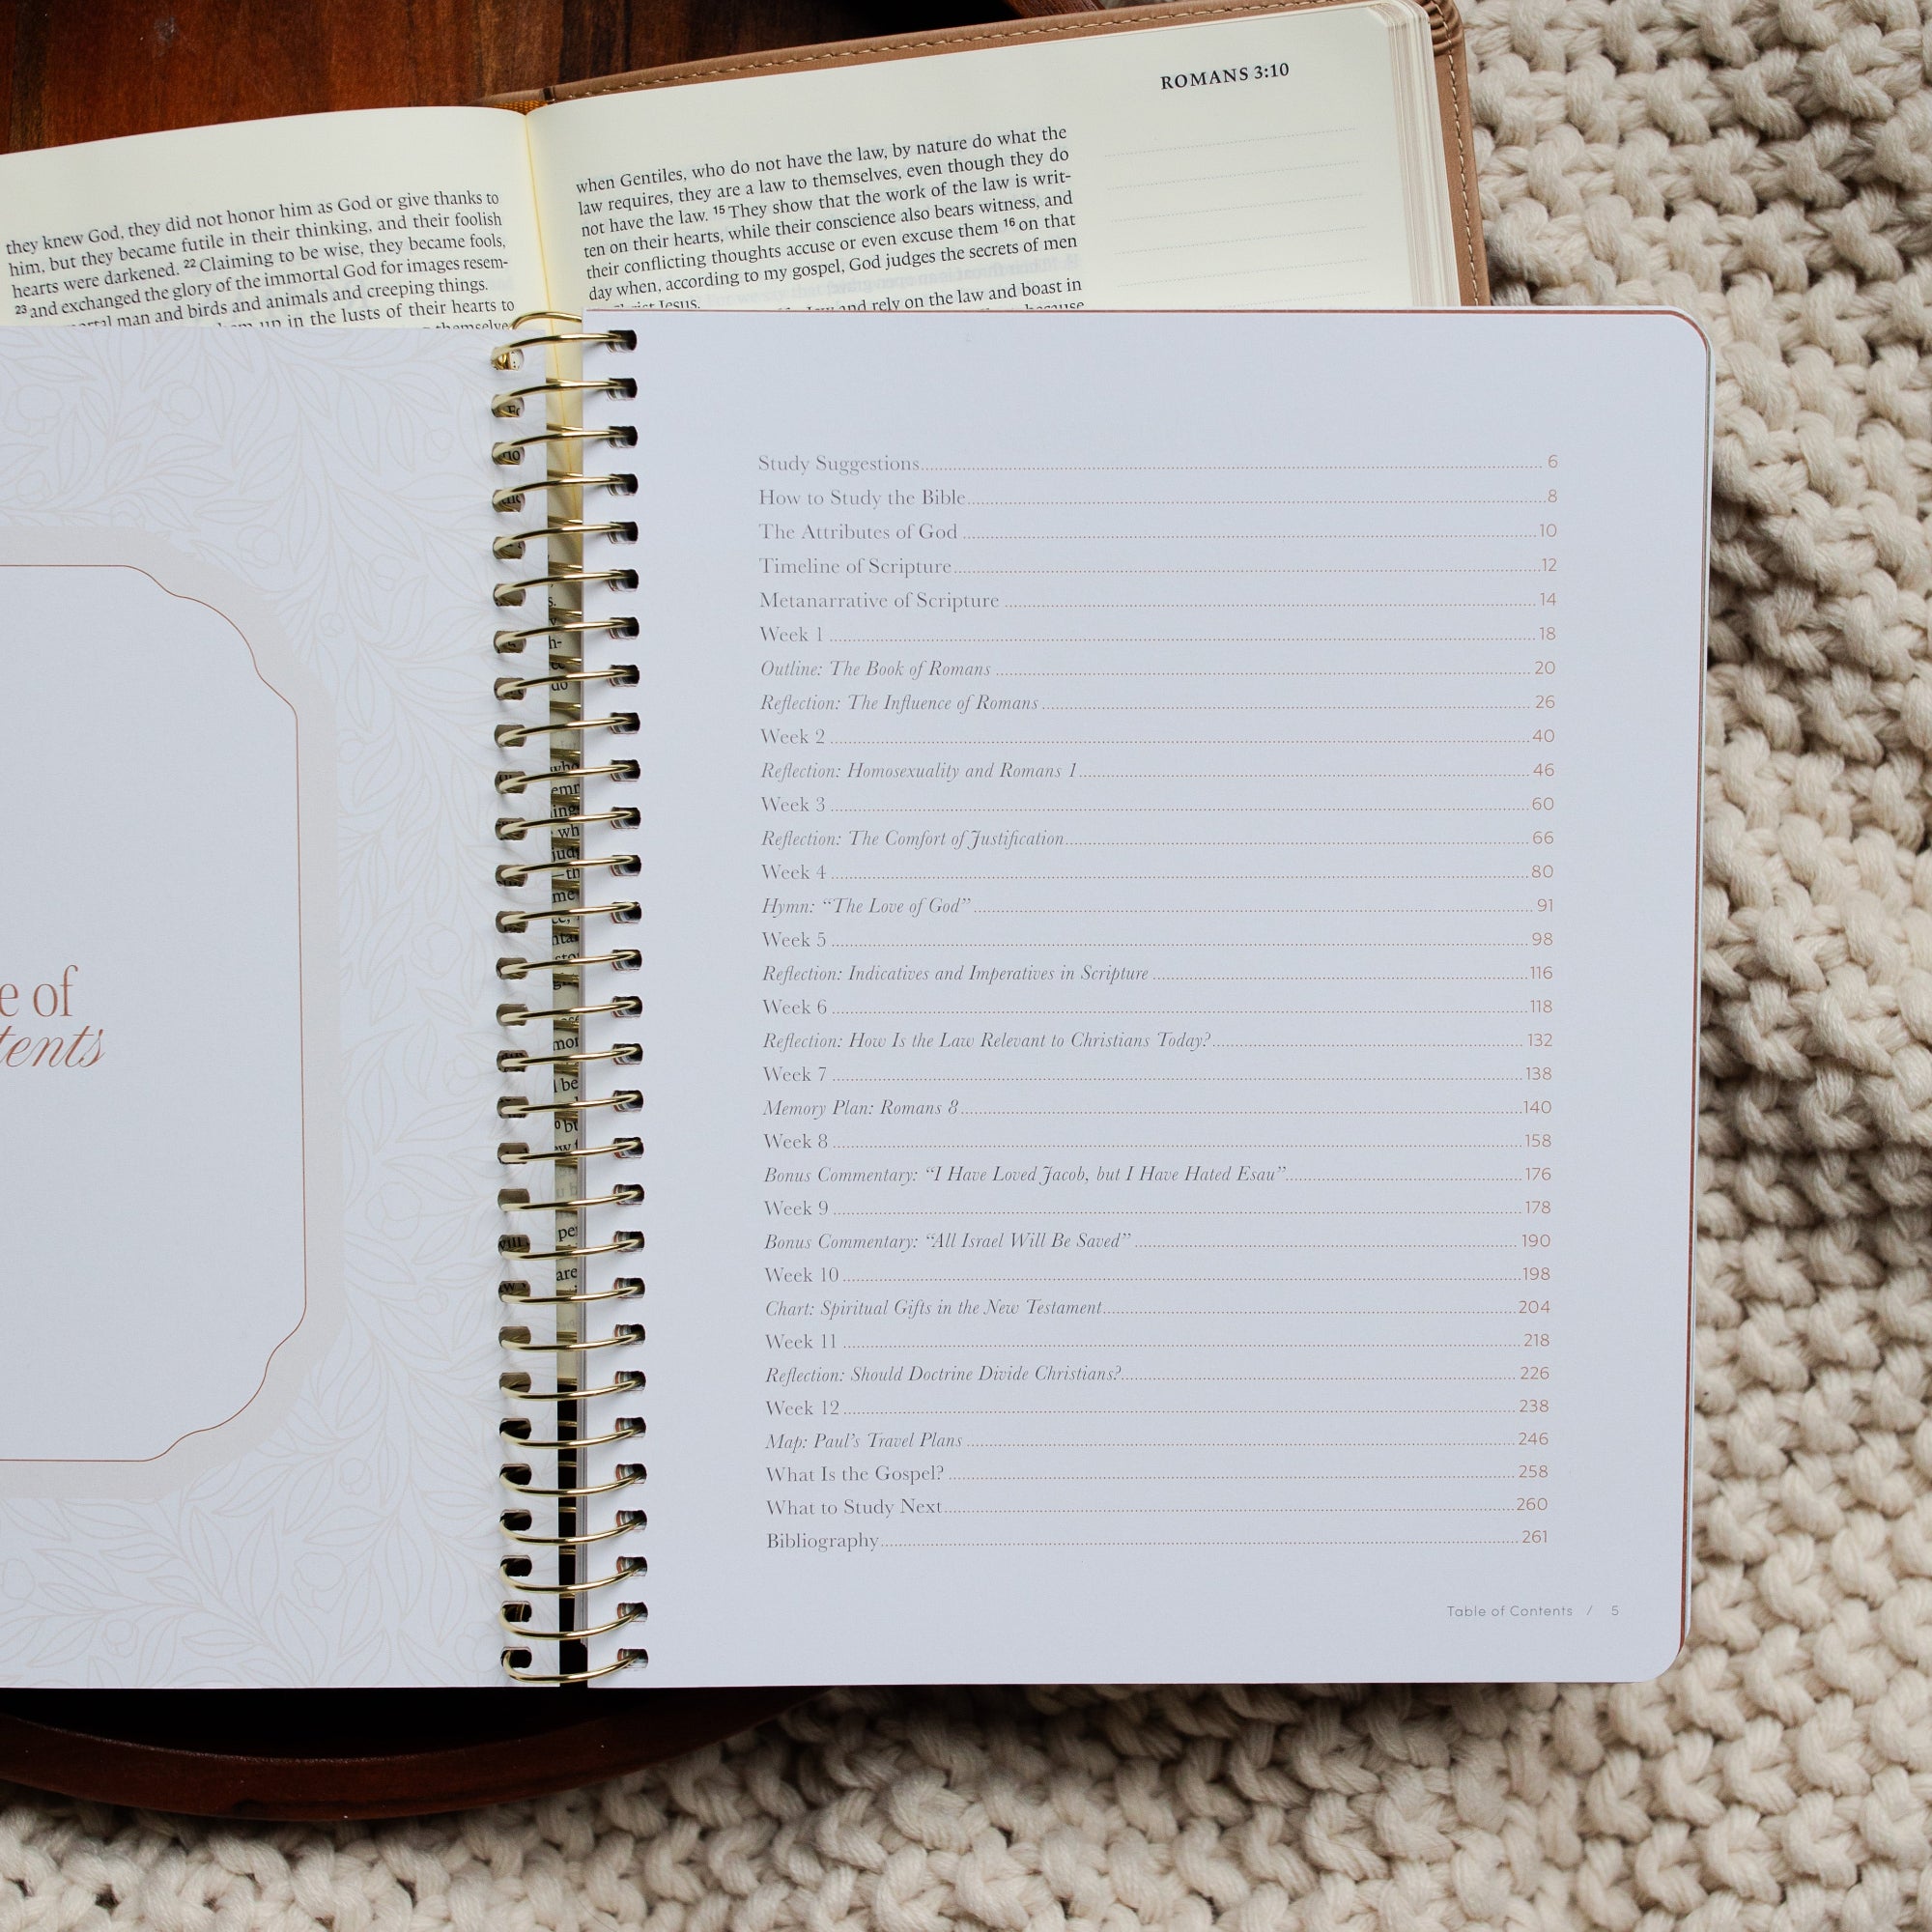 ROMANS 3:10
they knew God, they did not honor him as God or give thanks to
him, but they became futile in their thinking, and their foolish
hearts were darkened. 22 Claiming to be wise, they became fools,
23 and exchanged the glory of the immortal God for images resem-
man and birds and animals and creeping things.
up in the lusts of their hearts to
when Gentiles, who do not have the law, by nature do what the
law requires, they are a law to themselves, even though they do
not have the law. 15 They show that the work of the law is writ-
ten on their hearts, while their conscience also bears witness, and
their conflicting thoughts accuse or even excuse them 16 on that
day when, according to my gospel, God judges the secrets of men
Jesus.
and rely on the law and boast in
e of
tents
Study Suggestions 6
How to Study the Bible 8
The Attributes of God 10
Timeline of Scripture 12
Metanarrative of Scripture 14
Week 1 18
Outline: The Book of Romans 20
Reflection: The Influence of Romans 26
Week 2 40
Reflection: Homosexuality and Romans 1 46
Week 3 60
Reflection: The Comfort of Justification 66
Week 4 80
Hymn: “The Love of God” 91
Week 5 98
Reflection: Indicatives and Imperatives in Scripture 116
Week 6 118
Reflection: How Is the Law Relevant to Christians Today? 132
Week 7 138
Memory Plan: Romans 8 140
Week 8 158
Bonus Commentary: “I Have Loved Jacob, but I Have Hated Esau” 176
Week 9 178
Bonus Commentary: “All Israel Will Be Saved” 190
Week 10 198
Chart: Spiritual Gifts in the New Testament 204
Week 11 218
Reflection: Should Doctrine Divide Christians? 226
Week 12 238
Map: Paul’s Travel Plans 246
What Is the Gospel? 258
What to Study Next 260
Bibliography 261
Table of Contents / 5